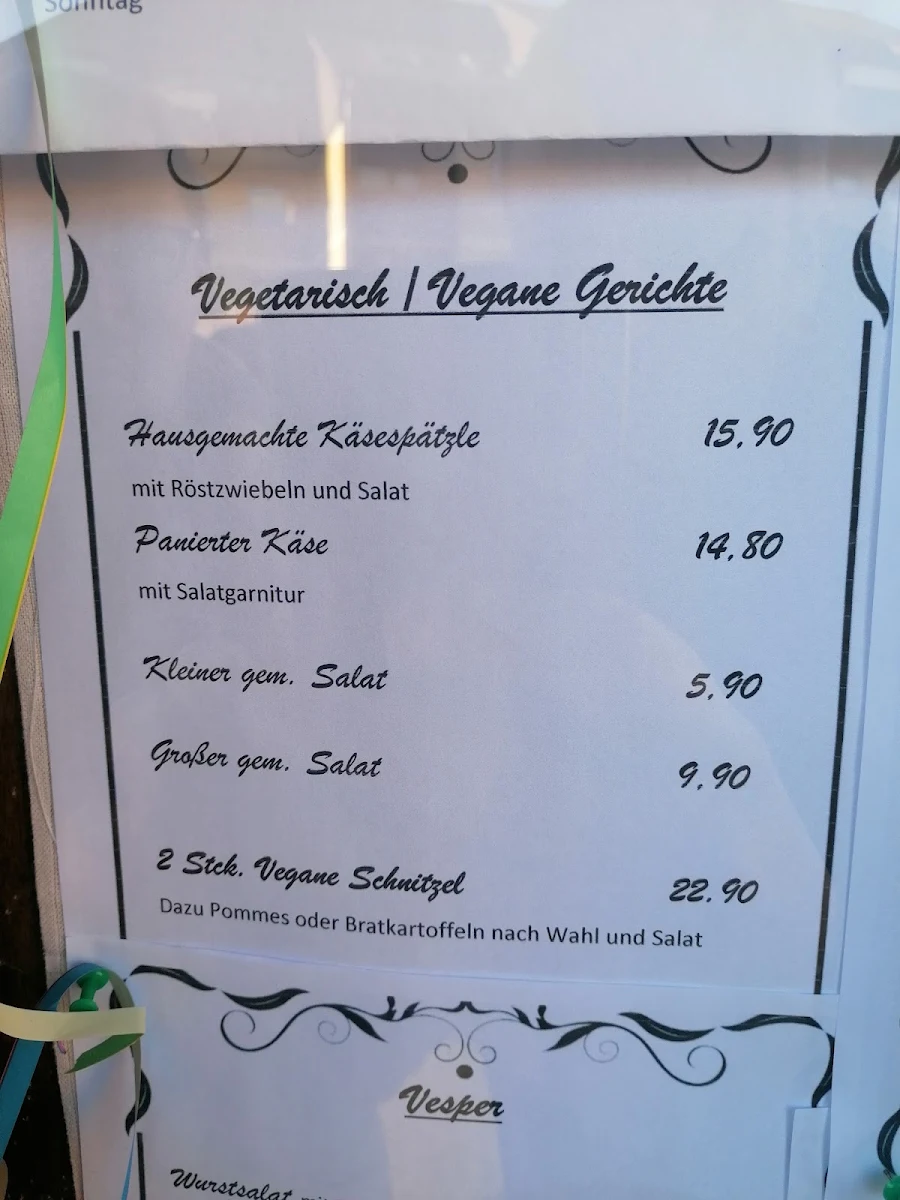 Sonntag
Vegetarisch | Vegane Gerichte
Hausgemachte Käsespätzle 15,90
mit Röstzwiebeln und Salat
Panierter Käse 14,80
mit Salatgarnitur
Kleiner gem. Salat 5,90
Großer gem. Salat 9,90
2 Stck. Vegane Schnitzel 22.90
Dazu Pommes oder Bratkartoffeln nach Wahl und Salat
Vesper
Wurstsalat